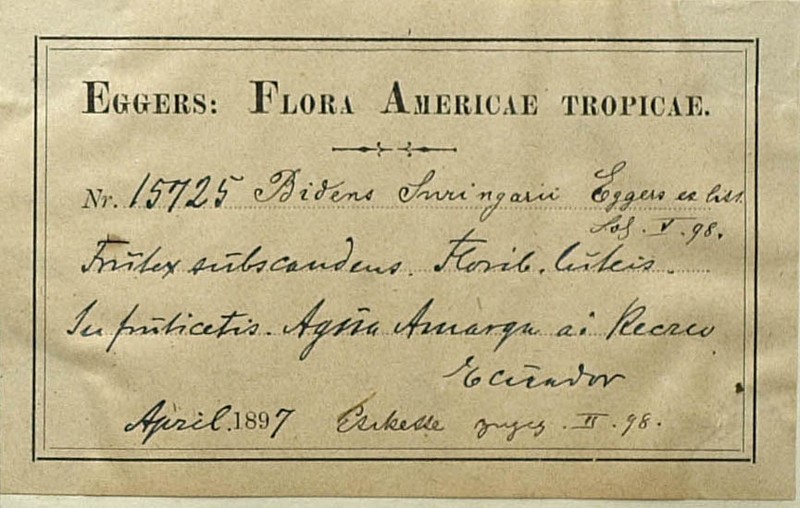 EGGERS: FLORA AMERICAE TROPICAE.
Nr. 15725 Bidens Suringarii Eggers ex litt.
V. 98.
Frutex subscandens. Florib. luteis.
In fruticetis. Agua Amarga ai Recreo
Ecuador
April. 1897 II. 98.